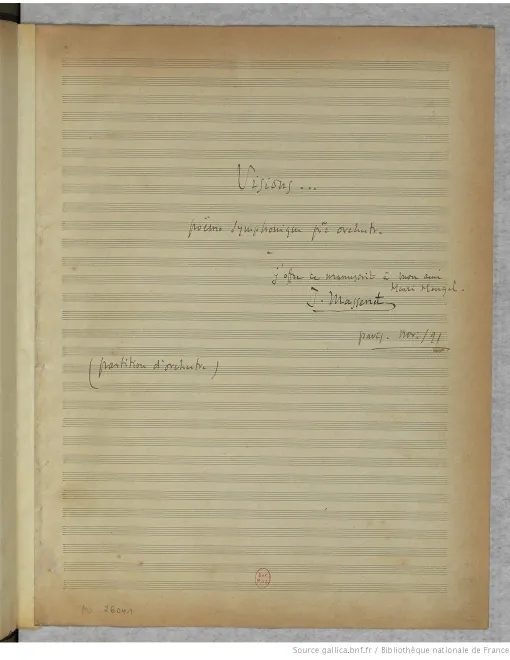 Visions...
poëme symphonique pr orchestre.
j'offre ce manuscrit à mon ami
Henri Heugel.
J. Massenet
paris. Nov. /91
(partition d'orchestre)
Source gallica.bnf.fr / Bibliothèque nationale de France